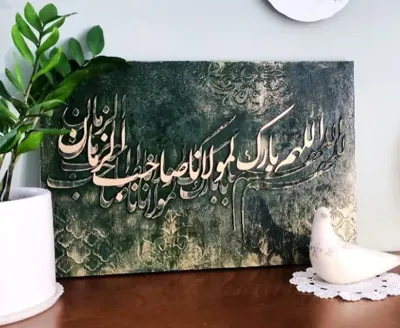 اللهم بارک لمولانا صاحب الزمان